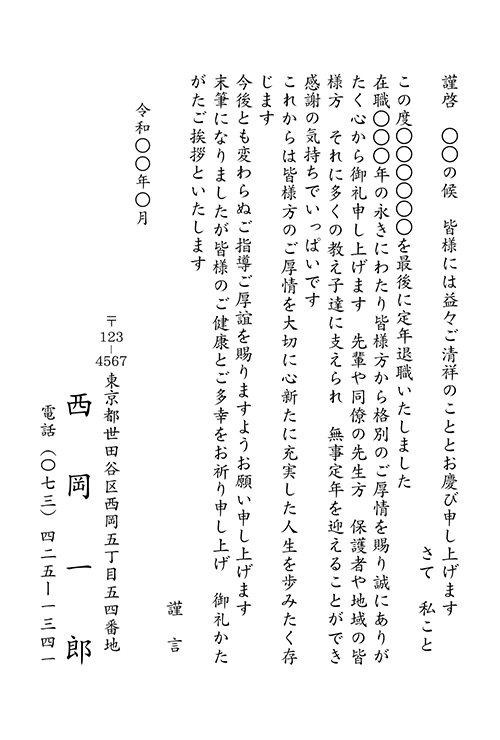 謹啓　〇〇の候　皆様には益々ご清祥のこととお慶び申し上げます
さて　私こと
この度〇〇〇〇〇〇を最後に定年退職いたしました
在職〇〇〇年の永きにわたり皆様方から格別のご厚情を賜り誠にありが
たく心から御礼申し上げます　先輩や同僚の先生方　保護者や地域の皆
様方　それに多くの教え子達に支えられ　無事定年を迎えることができ
感謝の気持ちでいっぱいです
これからは皆様方のご厚情を大切に心新たに充実した人生を歩みたく存
じます
今後とも変わらぬご指導ご厚誼を賜りますようお願い申し上げます
末筆になりましたが皆様のご健康とご多幸をお祈り申し上げ　御礼かた
がたご挨拶といたします
謹言
令和〇〇年〇月
〒123-4567東京都世田谷区西岡五丁目五四番地
西岡一郎
電話（〇七三）四二五ー一三四一